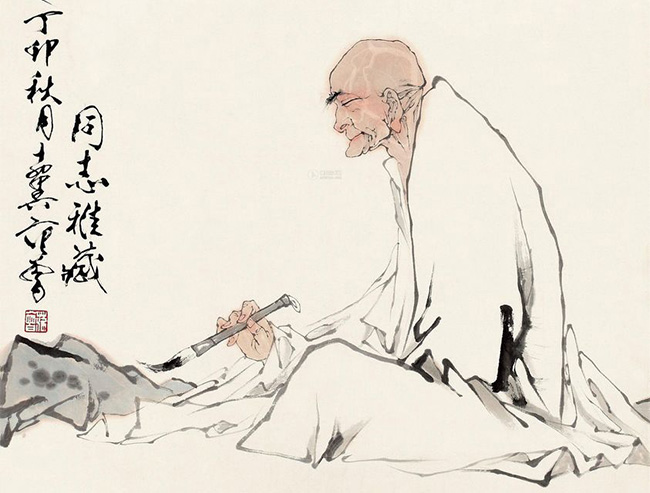 同志雅藏
丁卯秋月十翼范曾